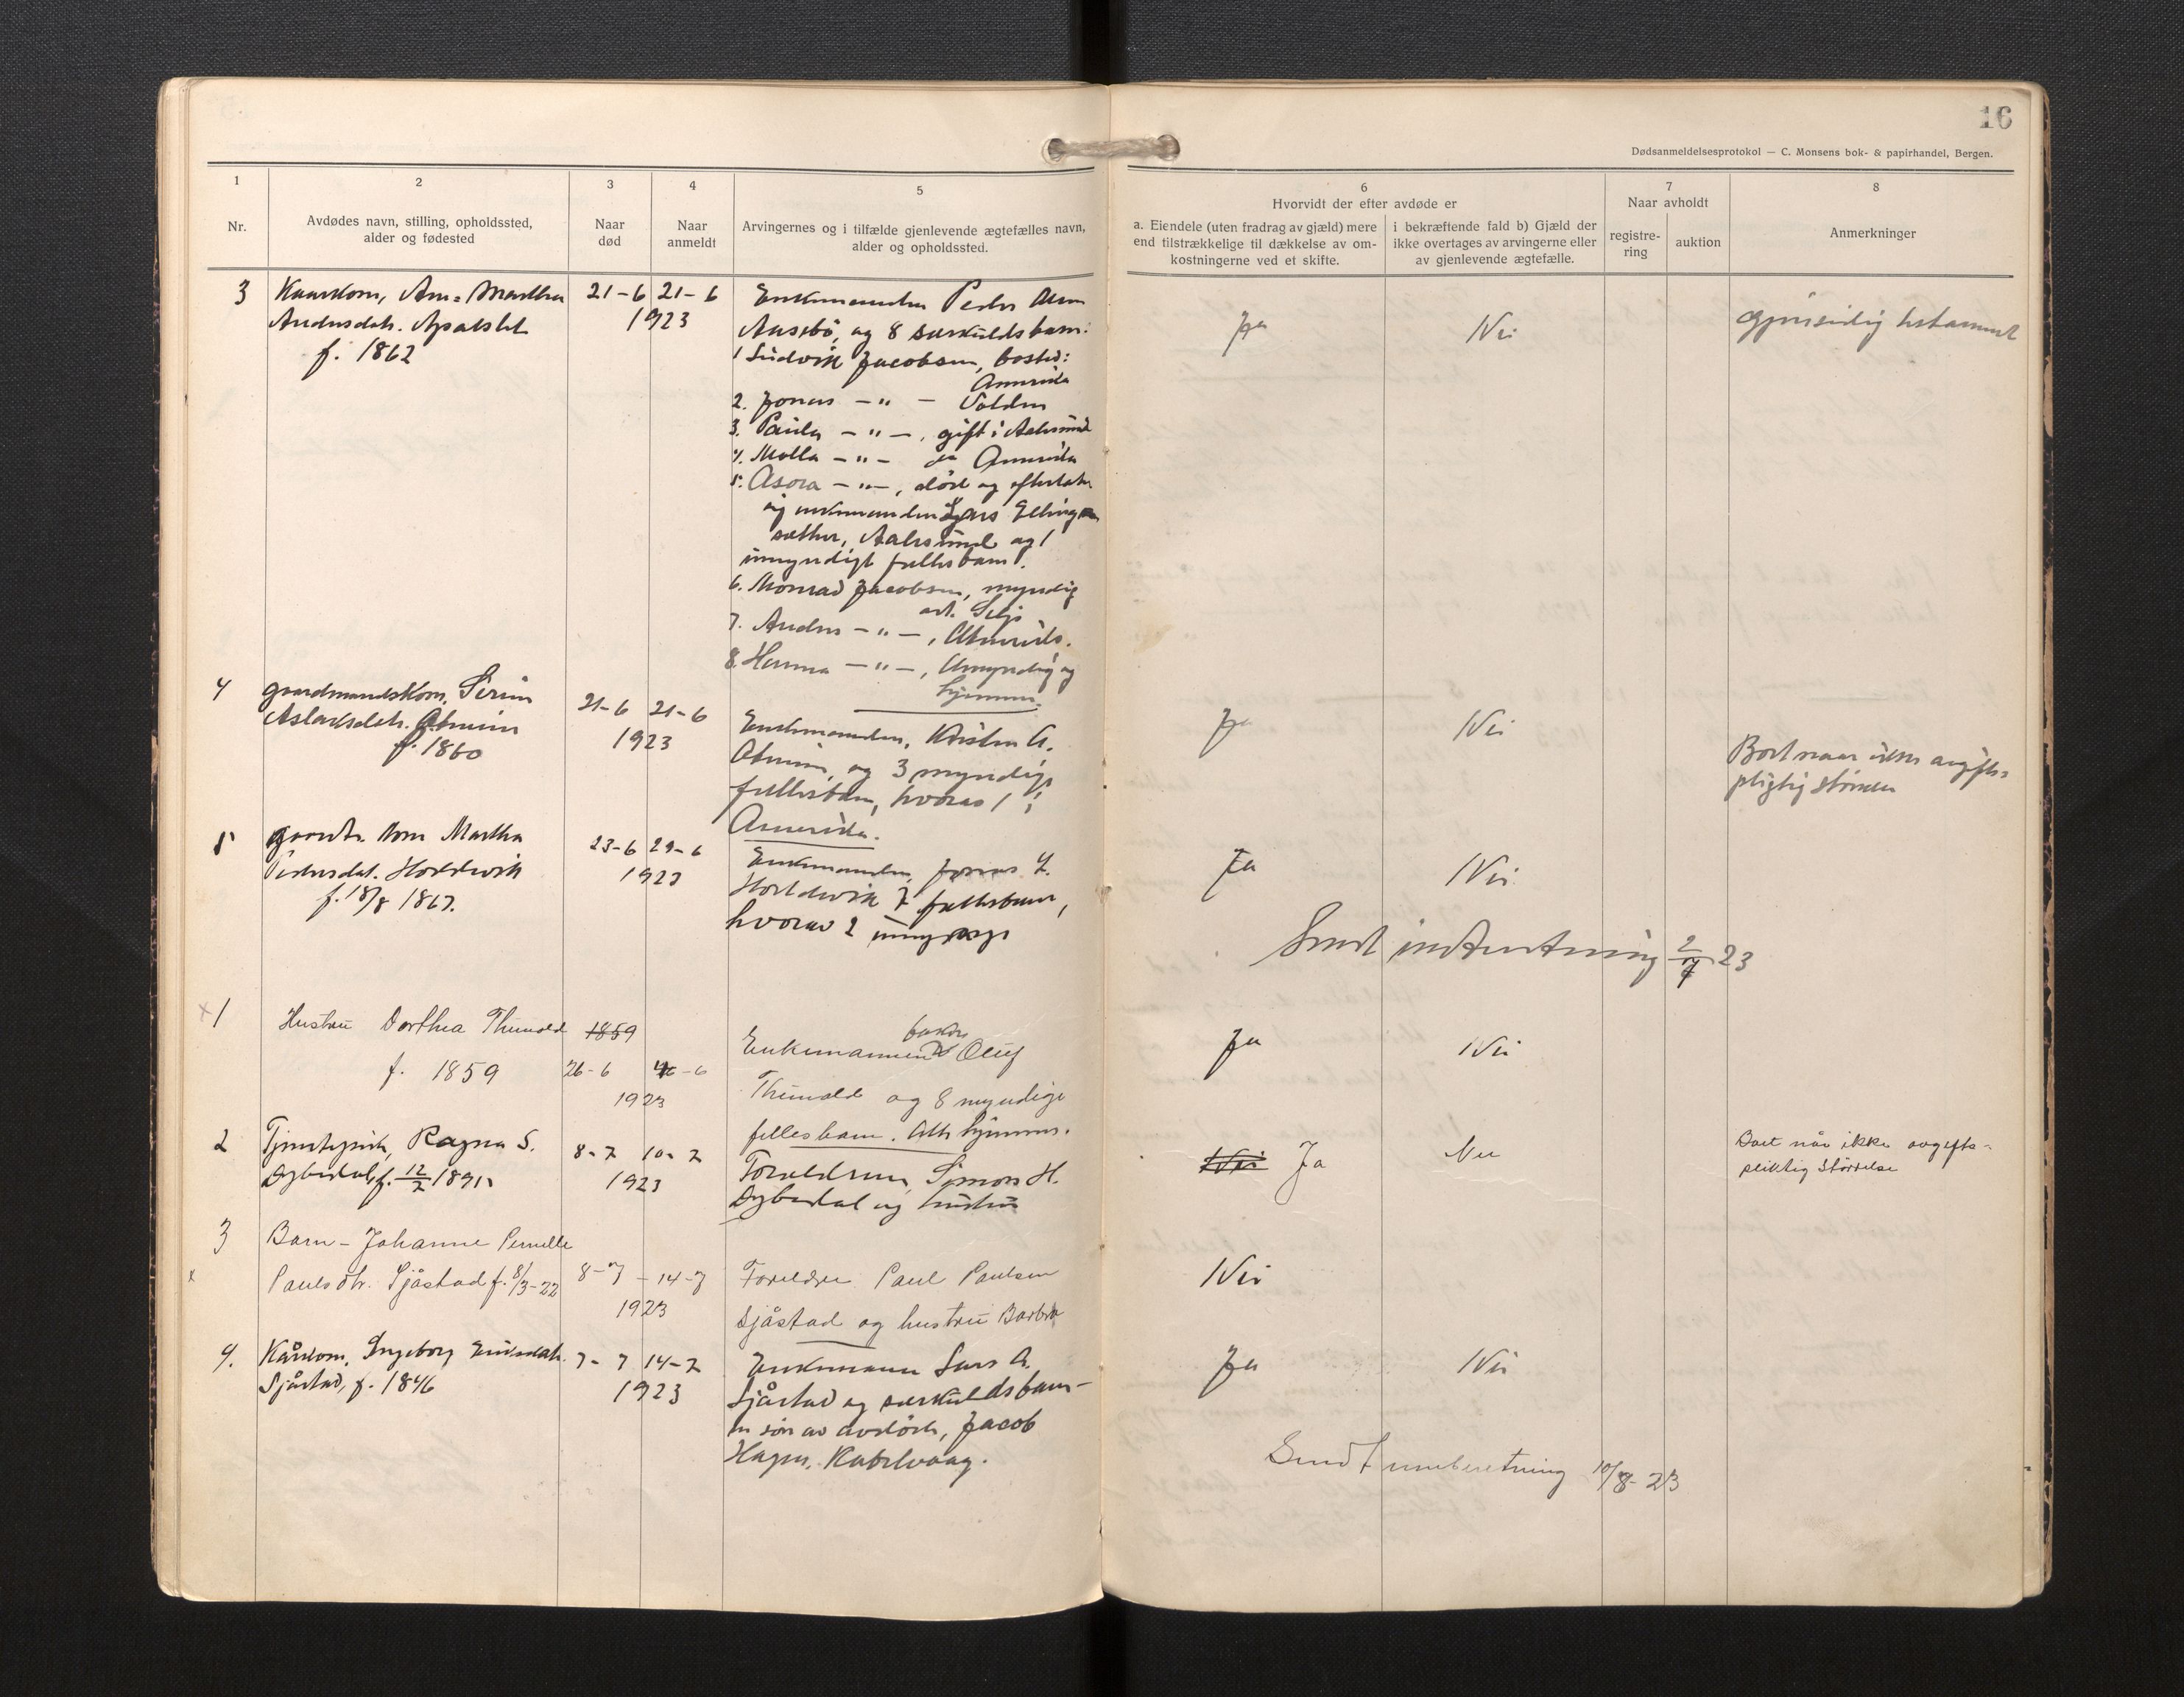 16
Dødsanmeldelsesprotokol — C. Monsens bok- & papirhandel, Bergen.
1
2
3
4
5
6
7
8
Nr.
Avdødes navn, stilling, opholdssted,
alder og fødested
Naar
død
Naar
anmeldt
Arvingernes og i tilfælde gjenlevende ægtefælles navn,
alder og opholdssted.
Hvorvidt der efter avdøde er
a. Eiendele (uten fradrag av gjæld) mere
end tilstrækkelige til dækkelse av om-
kostningerne ved et skifte.
i bekræftende fald b) Gjæld der
ikke overtages av arvingerne eller
av gjenlevende ægtefælle.
Naar avholdt
registre-
ring
auktion
Anmerkninger
3 Kaarkom, Ane Martha 21-6 21-6 Enkemanden Peder
Andersdtr. 1923 og 8 særkuldsbarn:
f. 1862 1 Ludvik Jacobsen, bosted:
Ja Nei
Amerika
2. Jonas — " — Volden
3. Paula — " —, gift i Aalesund
4. Molla — " — Amerika
5. Asora — " —, død og efterlater
sig enkemanden Lars Elling
sæther, Aalesund og 1
umyndigt fællesbarn.
6. Monrad Jacobsen, myndig
Selje
7. Anders — " —,
8. Hanna — " —, Umyndig og
hjemme.
4 Gaardmandskom. Serine 21-6 21-6
Aslaksdtr. 1923 Enkemanden, Kristen A.
f. 1860 og 3 myndige
fællesbarn, hvorav 1 i
Amerika.
Ja Nei
Boet naar ikke avgifts-
pligtig størrelse
5 Gaardbr. kone Martha 23-6 29-6
Pedersdat. Hoddevik 1923 Enkemanden, Jonas
f. 18/8 1867. Hoddevik 7 fællesbarn,
hvorav 2 umyndige
Ja Nei
Sendt indberetning 2/7 23
1 Hustru Dorthea Thunold 1859
f. 1859 26-6 -6 1923
Enkemannen Oluf
Thunold og 8 myndige
fellesbarn. Alle hjemme.
Ja Nei
2 Tjenestepike, Ragna S. 8-7 10-7
Dybedal, f. 12/2 1891 1923
Foreldrene, Simon H.
Dybedal og hustru
Nei Ja Nei
Boet når ikke avgifts-
pliktig størrelse
3 Barn - Johanne Pernille
Paulsdtr. Sjåstad f. 8/3-22 8-7 - 14-7
1923
Foreldre Paul Paulsen
Sjåstad og hustru Barbra
Nei
4. Kårkone, Ingeborg Eriksdatr. 7-7 14-7
Sjåstad, f. 1846 1923
Enkemann Lars A.
Sjåstad og særkuldsbarn-
en søn av avdøde, Jacob
Hagen, Kabelvaag.
Ja Nei
Sendt innberetning 10/8-23